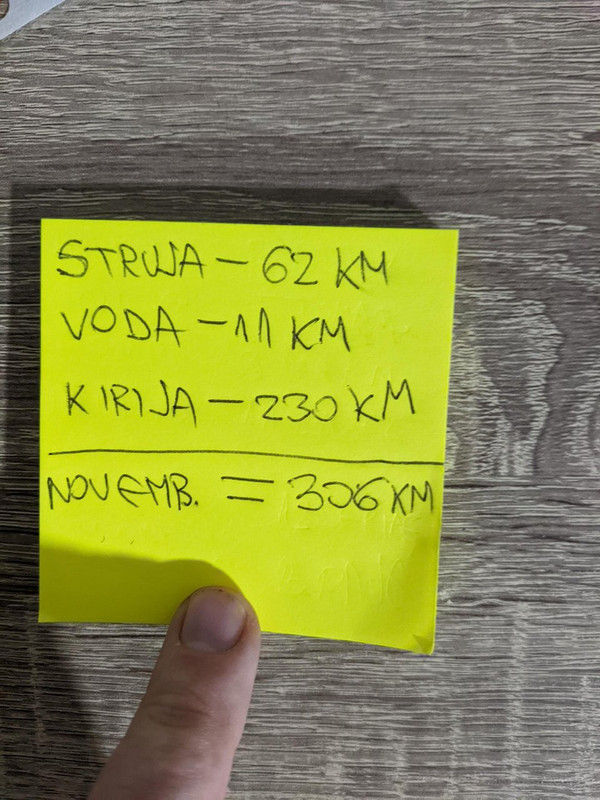 STRUJA - 62 KM
VODA - 11 KM
KIRIJA - 230 KM
NOVEMB. = 306 KM